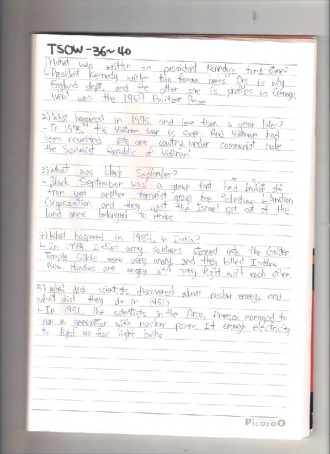 TSOW-36~40
1) What was written on president Kennedy's tomb stone?
England slept, and the other one is profiles in Courage,
2) What happened in 1975 and less than a year later?
In 1975, the Vietnam war is over. And Vietnam had
been reunited one country under communist rule
the Socialist Republic of Vietnam
3) What was Black September?
Black September was a group that had broke off
from yet another terrorist group the Palestine Liberation
Organization and they want the Israel get out of the
land once belonged to Arabs
4) What happened in 1984, in India?
In 1984 Indian army soldiers stormed into the Golden
Temple Sikhs were very angry and they killed Indira
Now Hindus are angry and very fight with each other
5) What did scientists discovered about nuclear energy and
what did they do in 1951?
In 1951, the scientists in the Arco, America managed to
run a generator with nuclear power. It enough electricity
to light up four light bulbs
Picozoo